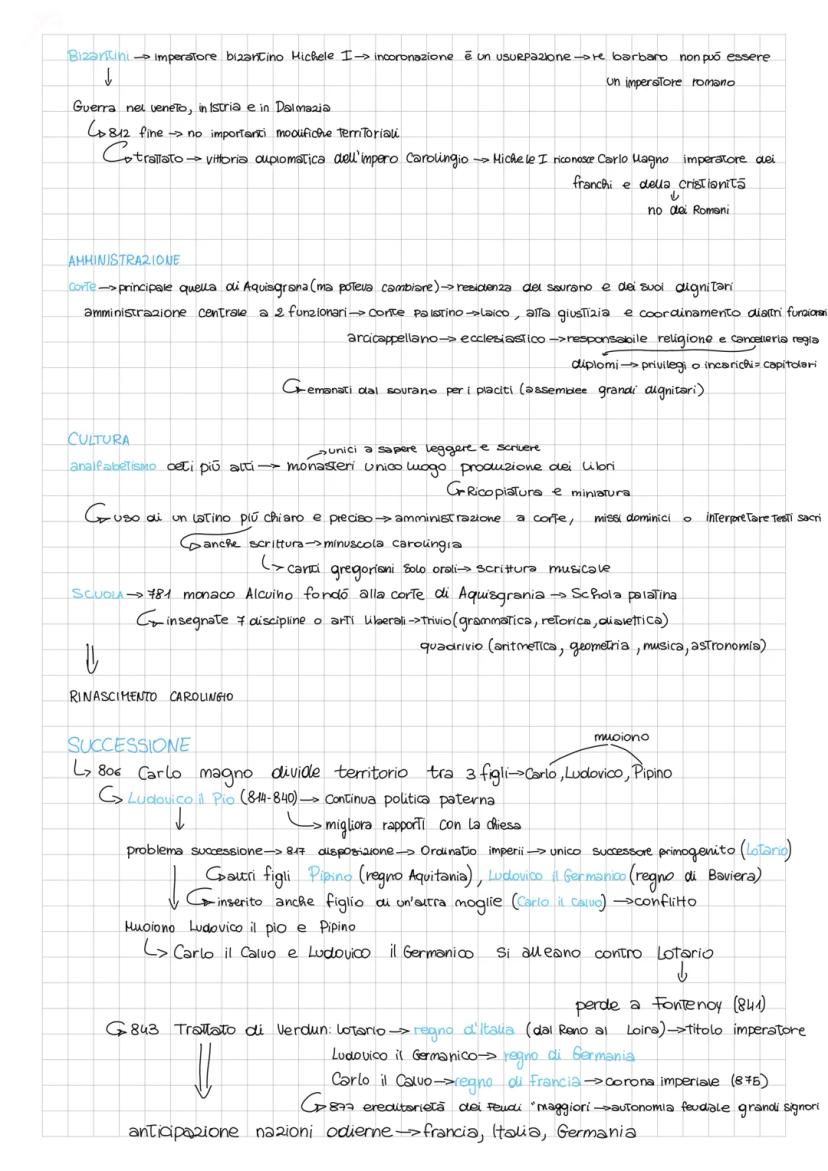 Bizantini → imperatore bizantino Michele I → incoronazione è un usurpazione → re barbaro non può essere
un imperatore romano
↓
Guerra nel veneto, in Istria e in Dalmazia
↳ 812 fine → no importanti modifiche territoriali
↳ trattato → vittoria diplomatica dell'impero Carolingio → Michele I riconosce Carlo Magno imperatore dei
franchi e della cristianità
↓
no dei Romani
AMMINISTRAZIONE
corte → principale quella di Aquisgrana (ma poteva cambiare) → residenza del sovrano e dei suoi dignitari
amministrazione centrale a 2 funzionari → conte palatino → laico, alta giustizia e coordinamento di altri funzionari
arcicappellano → ecclesiastico → responsabile religione e cancelleria regia
diplomi → privilegi o incarichi = capitolari
↳ emanati dal sovrano per i placiti (assemblee grandi dignitari)
CULTURA
→ unici a sapere leggere e scrivere
analfabetismo ceti più alti → monasteri unico luogo produzione dei libri
↳ Ricopiatura e miniatura
↳ uso di un latino più chiaro e preciso → amministrazione a corte, missi dominici o interpretare testi sacri
↳ anche scrittura → minuscola carolingia
↳ canti gregoriani solo orali → scrittura musicale
SCUOLA → 781 monaco Alcuino fondò alla corte di Aquisgrania → Schola palatina
↳ insegnate 7 discipline o arti liberali → trivio (grammatica, retorica, dialettica)
quadrivio (aritmetica, geometria, musica, astronomia)
⇓
RINASCIMENTO CAROLINGIO
SUCCESSIONE
muoiono
↳ 806 Carlo magno divide territorio tra 3 figli → Carlo, Ludovico, Pipino
↳ Ludovico il Pio (814-840) → continua politica paterna
↓ ↳ migliora rapporti con la chiesa
problema successione → 817 disposizione → Ordinatio imperii → unico successore primogenito (Lotario)
↳ altri figli Pipino (regno Aquitania), Ludovico il Germanico (regno di Baviera)
↓ ↳ inserito anche figlio di un'altra moglie (Carlo il Calvo) → conflitto
Muoiono Ludovico il pio e Pipino
↳ Carlo il Calvo e Ludovico il Germanico si alleano contro Lotario
↓
perde a Fontenoy (841)
↳ 843 Trattato di Verdun: Lotario → regno d'Italia (dal Reno al Loira) → titolo imperatore
Ludovico il Germanico → regno di Germania
Carlo il Calvo → regno di Francia → corona imperiale (875)
⇓ ↳ 877 ereditarietà dei Feudi "maggiori → autonomia feudale grandi signori
anticipazione nazioni odierne → francia, Italia, Germania